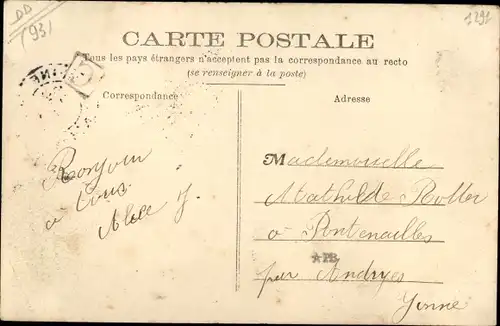 DD
(93)
1291
CARTE POSTALE
Tous les pays étrangers n'acceptent pas la correspondance au recto
(se renseigner à la poste)
Correspondance
Adresse
Bonjour
a tous
Alice J.
Mademoiselle
Mathilde Rollet
à Fontenailles
★ PB
par Andryes
Yonne